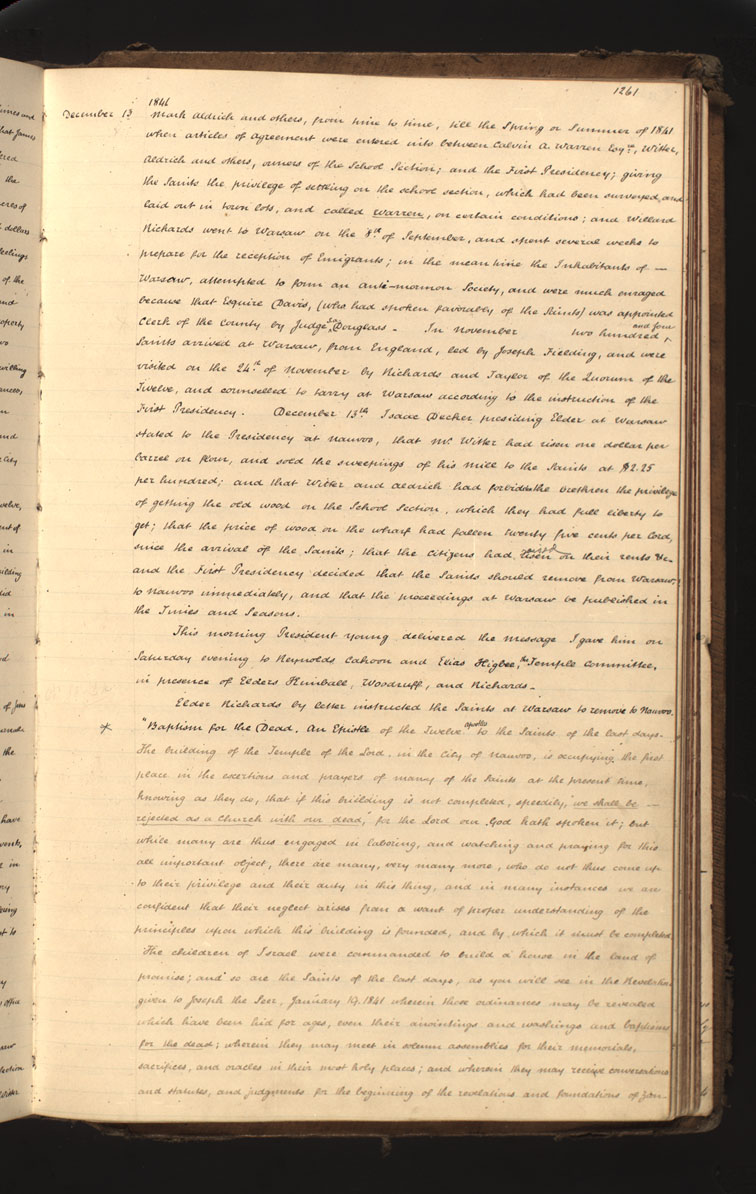 1261
1841
December 13 Mark Aldrich and others, from time to time, till the Spring or Summer of 1841
when articles of agreement were entered into between Calvin A. Warren Esqre, Witter,
Aldrich and others, owners of the School Section; and the First Presidency; giving
the Saints the privilege of settling on the school section, which had been surveyed, and
laid out in town lots, and called Warren, on certain conditions; and Willard
Richards went to Warsaw on the 8th of September, and spent several weeks to
prepare for the reception of Emigrants; in the mean time the Inhabitants of —
Warsaw, attempted to form an anti-mormon Society, and were much enraged
because that Esquire Davis, (who had spoken favorably of the Saints) was appointed
Clerk of the county by Judge Douglass — In November two hundred and four
Saints arrived at Warsaw, from England, led by Joseph Fielding, and were
visited on the 24th of November by Richards and Taylor of the Quorum of the
Twelve, and counselled to tarry at Warsaw according to the instruction of the
First Presidency. December 13th Isaac Decker presiding Elder at Warsaw
stated to the Presidency at Nauvoo, that Mr Witter had risen one dollar per
barrel on flour, and sold the sweepings of his mill to the Saints at $2.25
per hundred; and that Witter and Aldrich had forbid the brethren the privilege
of getting the old wood on the School Section, which they had full liberty to
get; that the price of wood on the wharf had fallen twenty five cents per Cord,
since the arrival of the Saints; that the citizens had risen on their rents &c—
and the First Presidency decided that the Saints should remove from Warsaw
to Nauvoo immediately, and that the proceedings at Warsaw be published in
the Times and Seasons.
This morning President Young delivered the message I gave him on
Saturday evening to Reynolds Cahoon and Elias Higbee, the Temple Committee,
in presence of Elders Kimball, Woodruff, and Richards —
Elder Richards by letter instructed the Saints at Warsaw to remove to Nauvoo.
* "Baptism for the Dead. An Epistle of the Twelve apostles to the Saints of the last days.
The building of the Temple of the Lord, in the City of Nauvoo, is occupying the first
place in the exertions and prayers of many of the Saints at the present time,
knowing as they do, that if this building is not completed, speedily, "we shall be —
rejected as a Church with our dead," for the Lord our God hath spoken it; but
while many are thus engaged in laboring, and watching and praying for this
all important object, there are many, very many more, who do not thus come up
to their privilege and their duty in this thing, and in many instances we are
confident that their neglect arises from a want of proper understanding of the
principles upon which this building is founded, and by which it must be completed
The children of Israel were commanded to build a house in the land of
promise; and so are the Saints of the last days, as you will see in the Revelation
given to Joseph the Seer, January 19. 1841 wherein those ordinances may be revealed
which have been hid for ages, even their anointings and washings and baptisms
for the dead; wherein they may meet in solemn assemblies for their memorials,
sacrifices, and oracles in their most holy places; and wherein they may receive conversations
and statutes, and judgments for the beginning of the revelations and foundations of Zion—